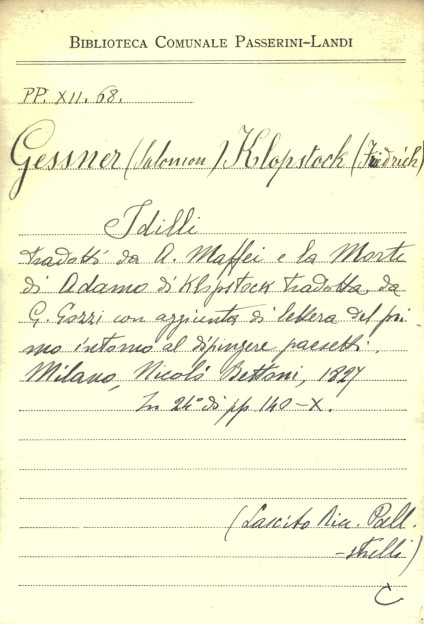 BIBLIOTECA COMUNALE PASSERINI-LANDI
PP. XII. 68.
Gessner (Salomon) Klopstock (Friedrich)
Idilli
tradotti da A. Maffei e la Morte
di Adamo di Klopstock tradotta da
G. Gozzi con aggiunta di lettera del pri-
mo intorno al dipingere paesetti.
Milano, Nicolò Bettoni, 1827
In 24° di pp 140-X.
(Lascito Riu. Pall.
-strelli)
C